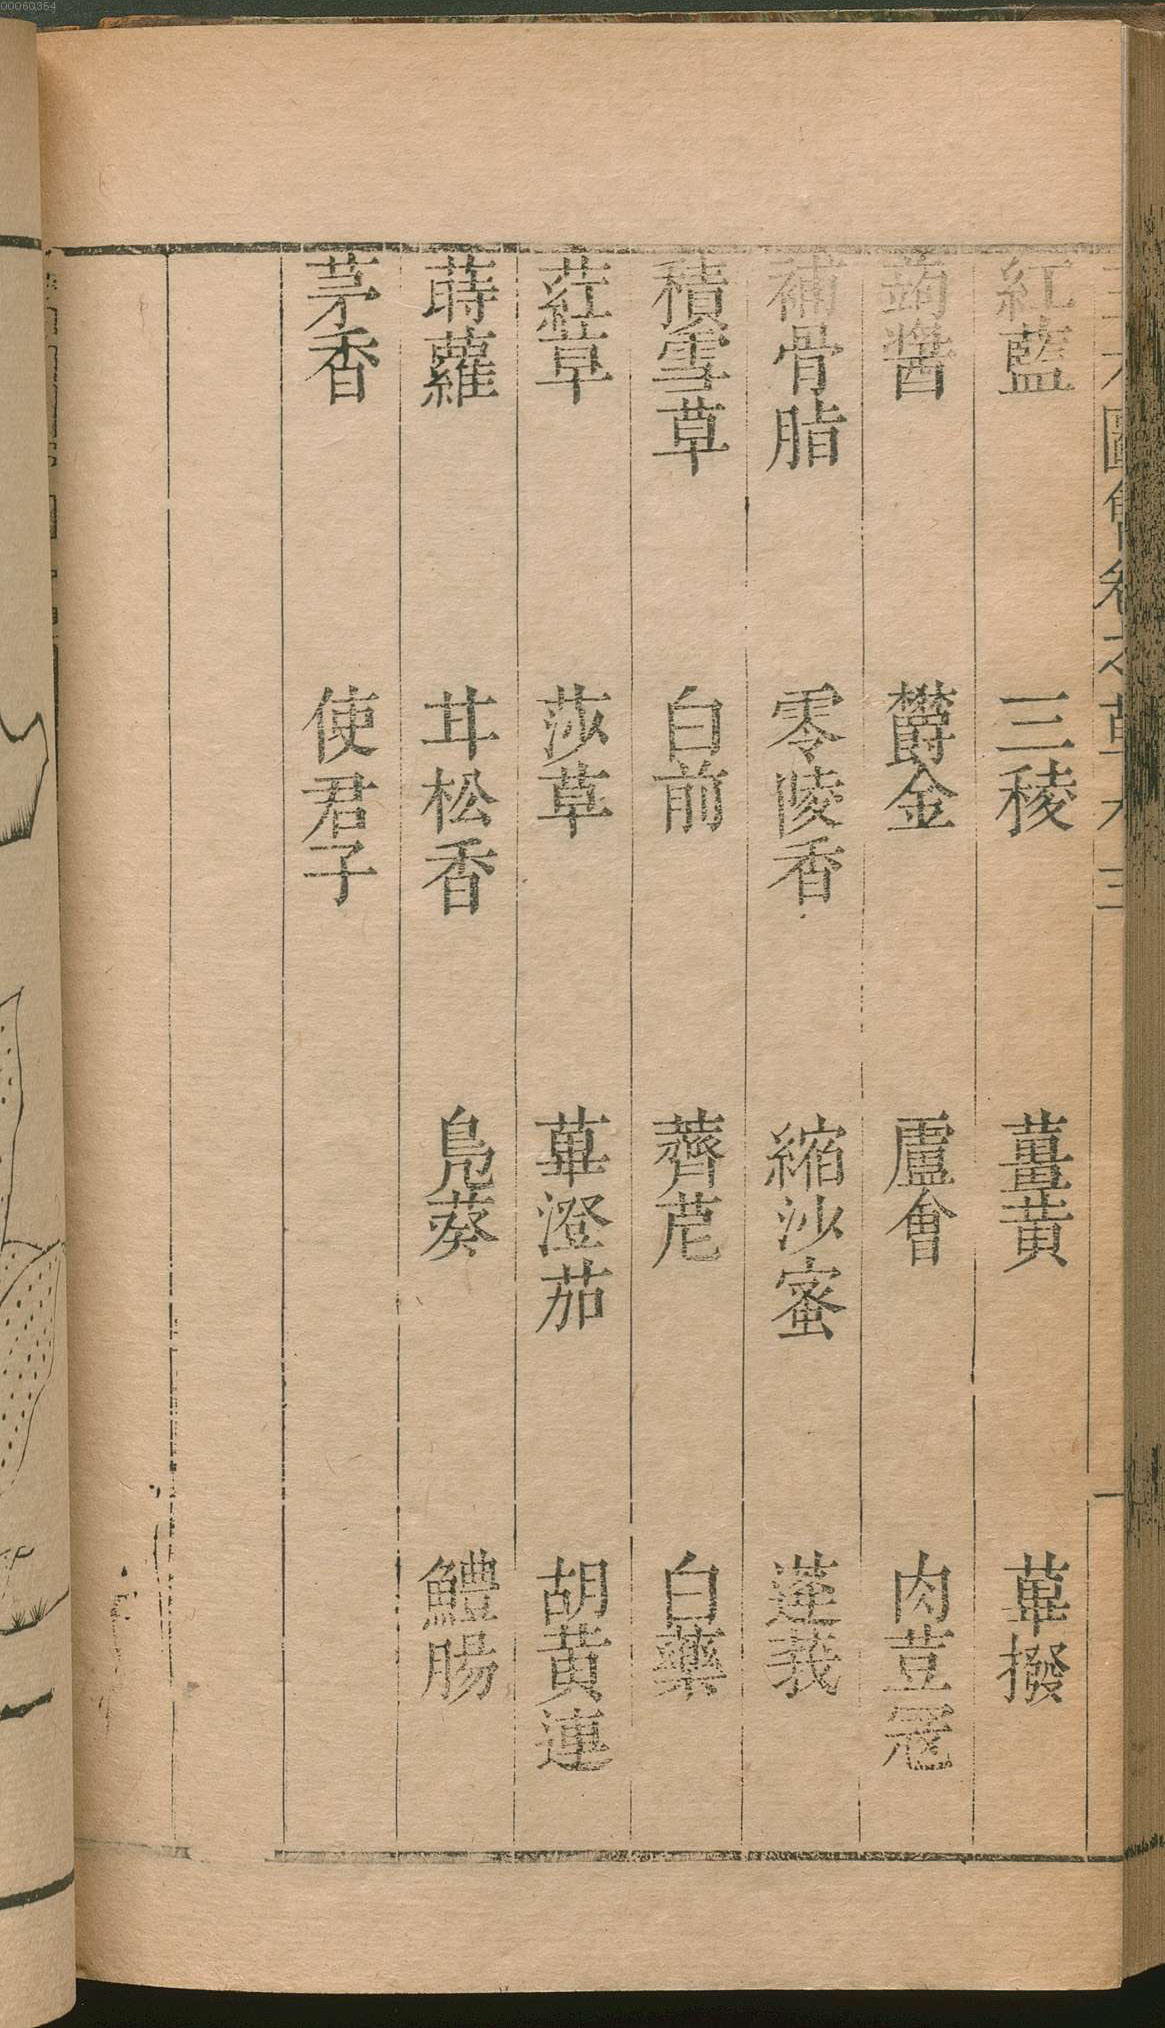 00060354
紅藍 三稜 薑黃 蓽撥
蒟醬 欝金 盧會 肉荳冦
補骨脂 零陵香 縮沙蜜 蓬莪
積雪草 白前 薺苨 白藥
葒草 莎草 蓽澄茄 胡黃連
蒔蘿 甘松香 鳧葵 鱧腸
茅香 使君子